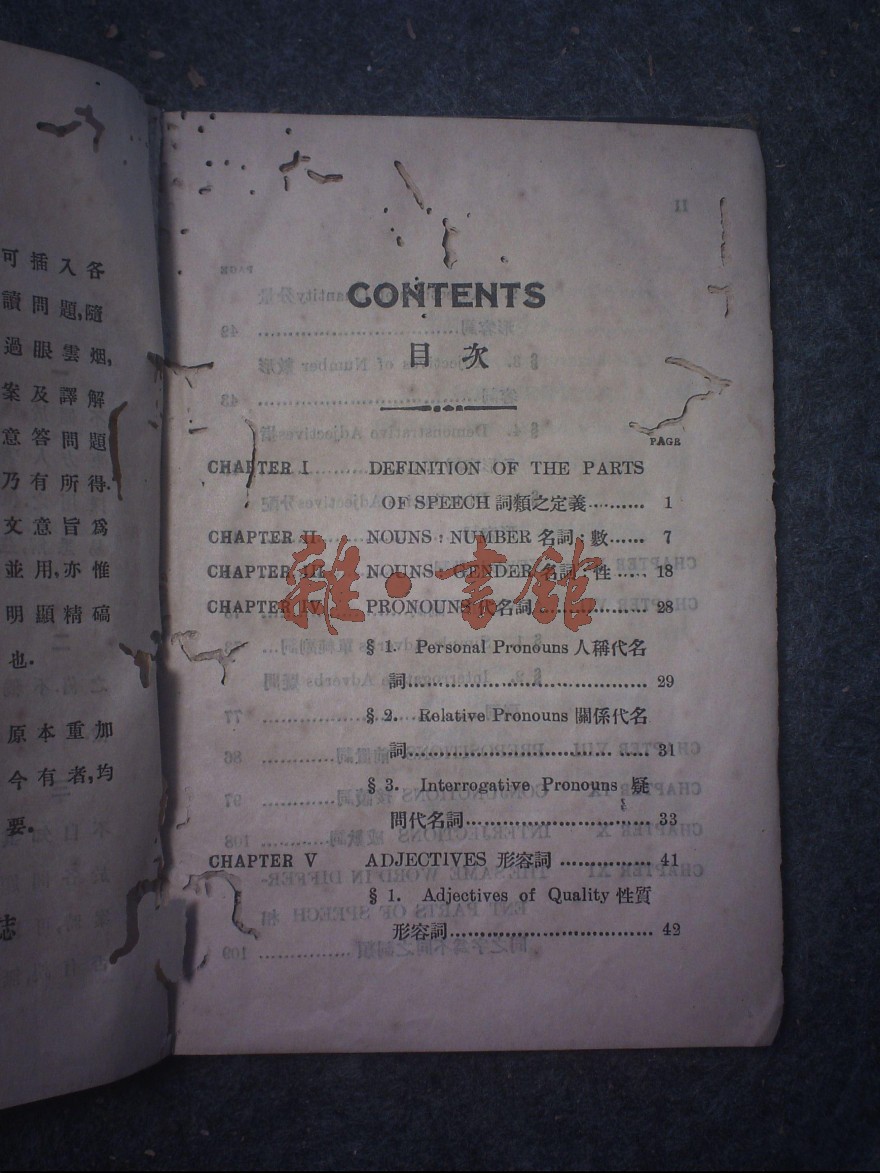 可插入各
讀問題,隨
過眼雲烟,
案及譯解
意答問題
乃有所得.
文意旨爲
並用,亦惟
明顯精碻
也.
原本重加
今有者,均
要.
志
CONTENTS
目次
PAGE
CHAPTER I DEFINITION OF THE PARTS
OF SPEECH 詞類之定義.......... 1
CHAPTER II NOUNS : NUMBER 名詞：數...... 7
CHAPTER III NOUNS: GENDER 名詞：性 ..... 18
CHAPTER IV PRONOUNS 代名詞.................. 28
§ 1. Personal Pronouns 人稱代名
詞........................................ 29
§ 2. Relative Pronouns 關係代名
詞........................................ 31
§ 3. Interrogative Pronouns 疑
問代名詞............................... 33
CHAPTER V ADJECTIVES 形容詞 ............... 41
§ 1. Adjectives of Quality 性質
形容詞.................................. 42
雜·書館